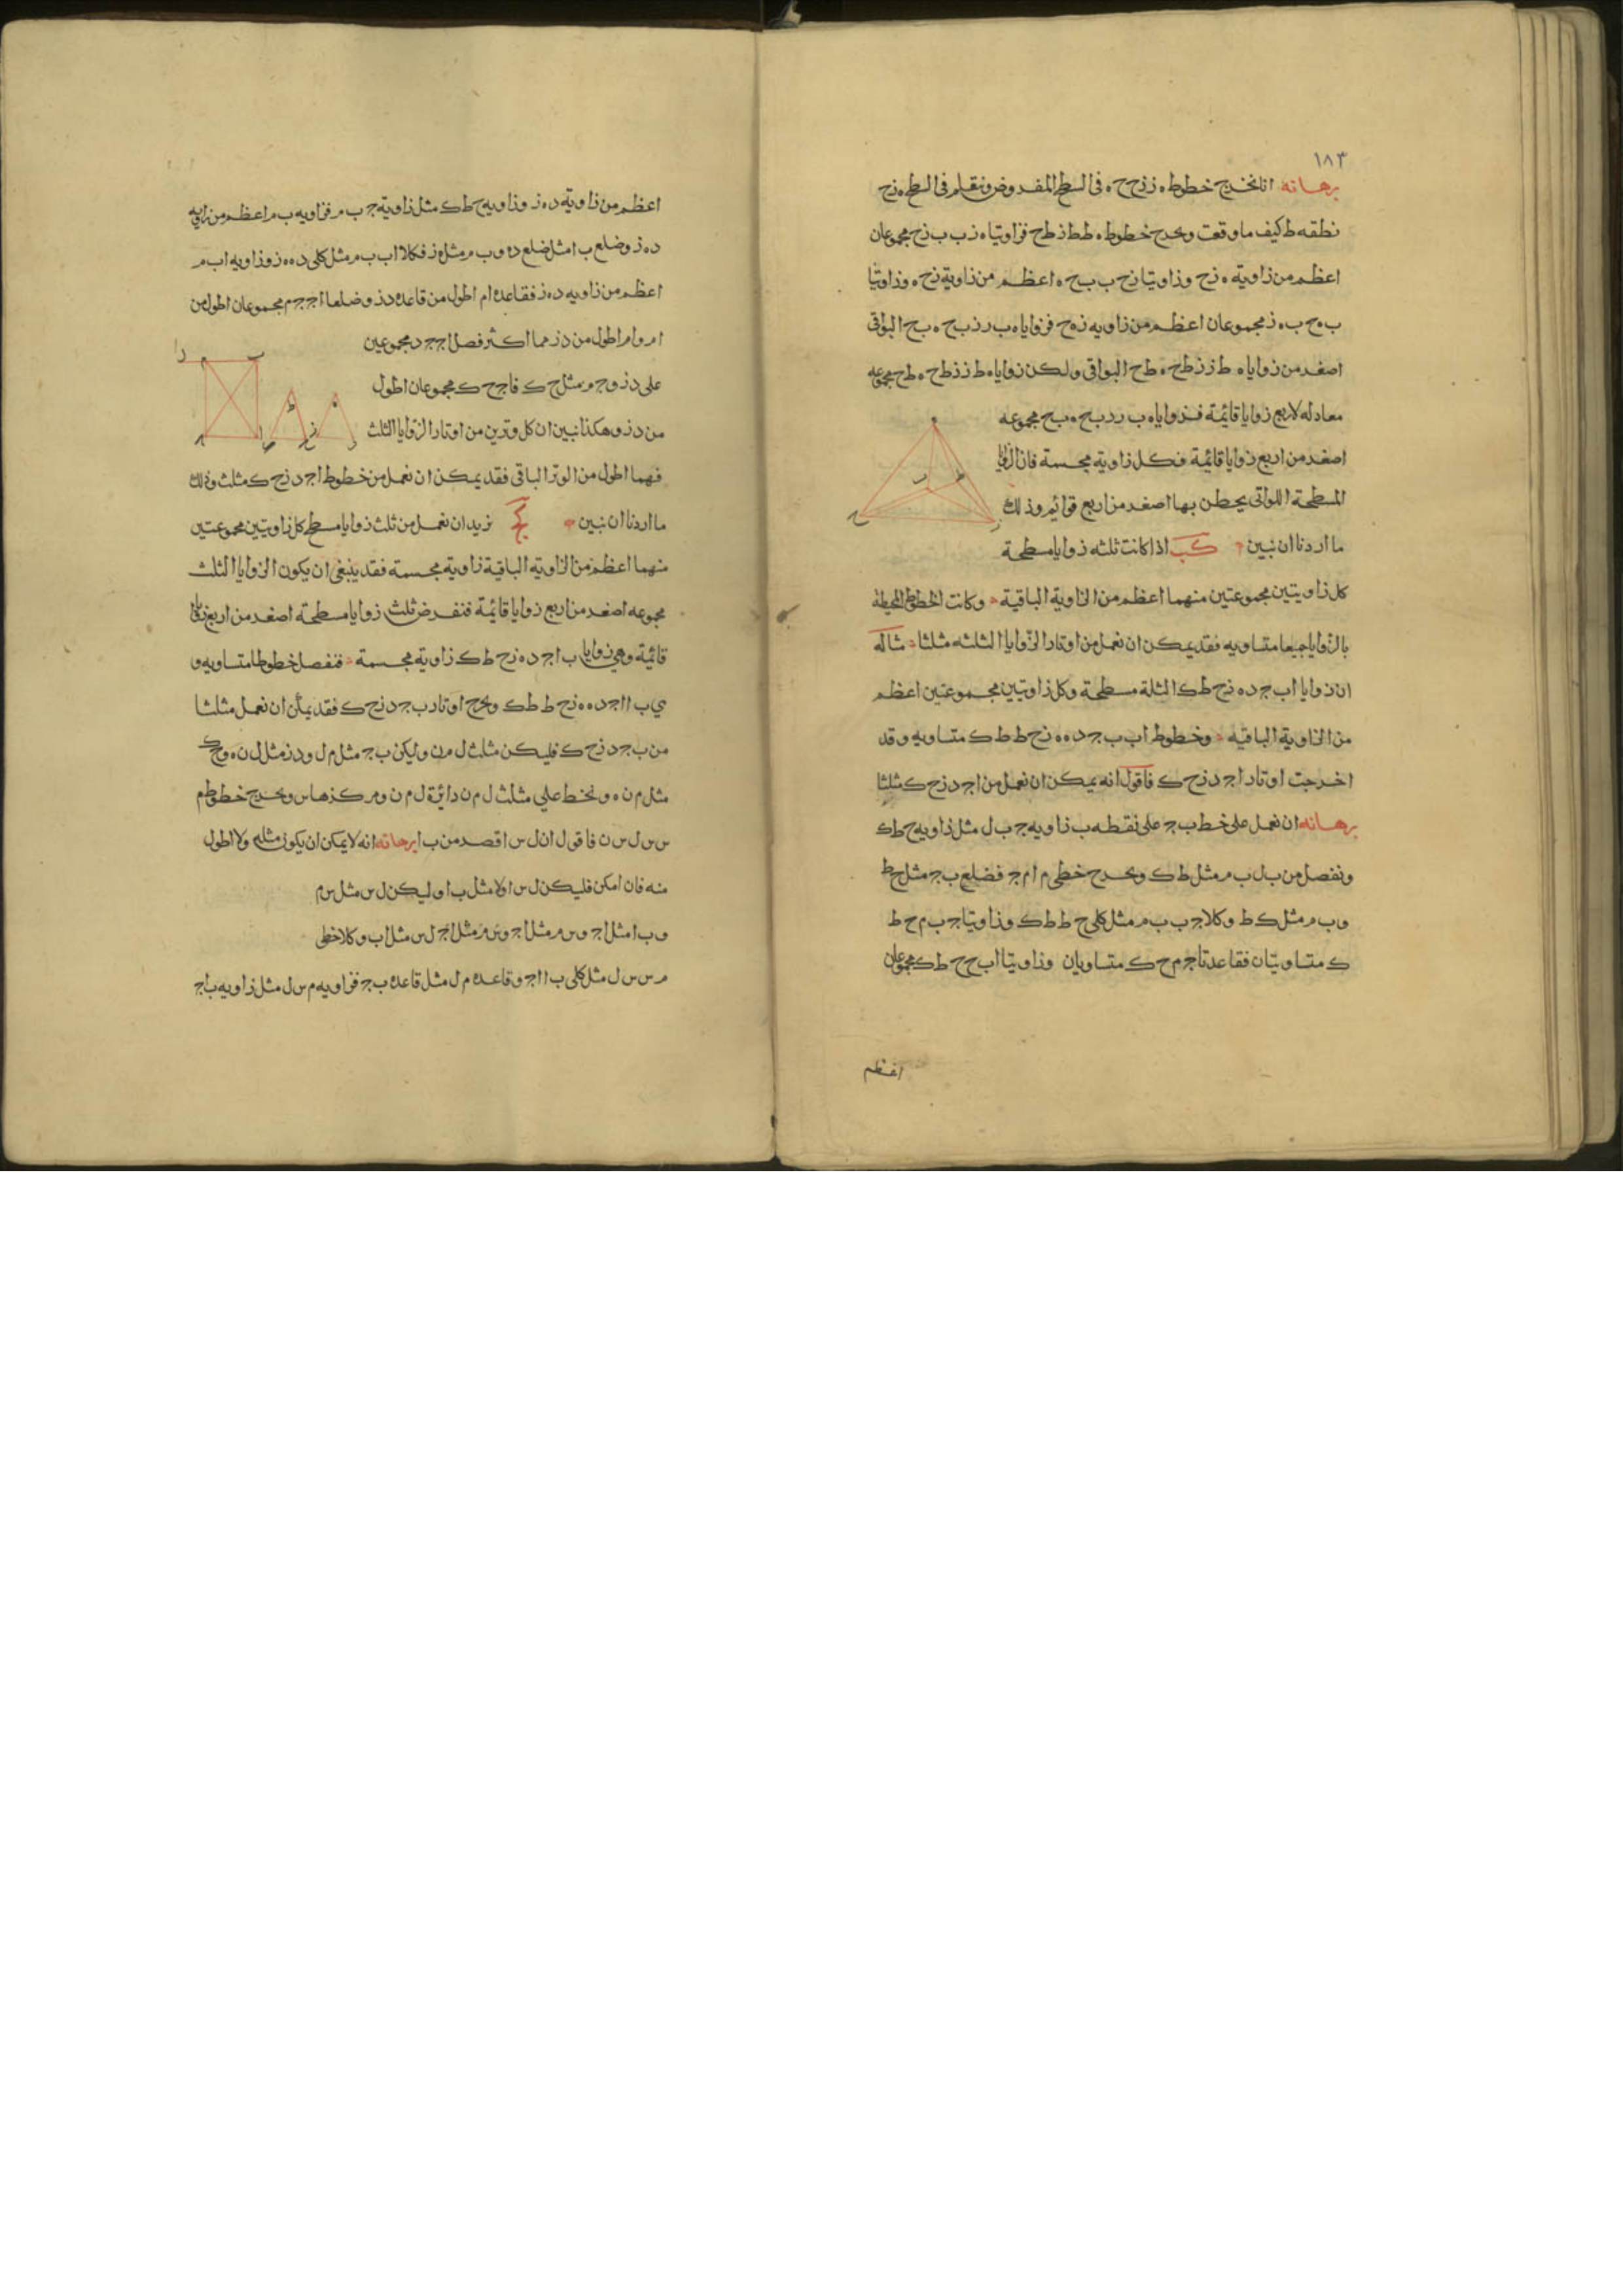 ١٨٣
برهانه انا نخرج خطوط ه ز ز ح ح ه في السطح المفروض ونعلم في السطح ه ز ح
نطقه ط كيف ما وقعت ونخرج خطوط ه ط ط ز ط ح فزاويتا ه ز ب ب ز ح مجموعان
اعظم من زاوية ه ز ح وزاويتا ز ح ب ب ح ه اعظم من زاوية ز ح ه وزاويتا
ب ه ح ب ه ز مجموعان اعظم من زاويه ز ه ح فزوايا ه ب ز ز ب ح ه ب ح البواقي
اصغر من زوايا ه ط ز ز ط ح ه ط ح البواقي ولكن زوايا ه ط ز ز ط ح ه ط ح مجموعه
معادله لاربع زوايا قائمة فزوايا ه ب ز ز ب ح ه ب ح مجموعه
اصغر من اربع زوايا قائمة فكل زاوية مجسمة فان الزوايا
المسطحة اللواتي يحطن بها اصغر من اربع قوائم وذلك
ما اردنا ان نبين كب اذا كانت ثلثه زوايا مسطحة
كل زاويتين مجموعتين منهما اعظم من الزاوية الباقية وكانت الخطوط المحيطة
بالزوايا جميعا متساويه فقد يمكن ان نعمل من اوتار الزوايا الثلثه مثلثا مثاله
ان زوايا ا ب ج د ه ز ح ط ك الثلة مسطحة وكل زاويتين مجموعتين اعظم
من الزاوية الباقيه وخطوط ا ب ب ج د ه ه ز ح ط ط ك متساويه وقد
اخرجت اوتار ا ج د ز ح ك فاقول انه يمكن ان نعمل من ا ج د ز ح ك مثلثا
برهانه ان نعمل على خط ب ج على نقطه ب زاويه ج ب ل مثل زاويه ح ط ك
ونفصل من ب ل ب م مثل ط ك ونخرج خطي م ا م ج فضلع ب ج مثل ح ط
و ب م مثل ك ط وكلا ج ب ب م مثل كلي ح ط ط ك وزاويتا ج ب م ح ط
ك متساويتان فقاعدتا ج م ح ك متساويان وزاويتا ا ب ج ح ط ك مجموعان
اعظم
اعظم من زاوية د ه ز وزاويه ح ط ك مثل زاوية ج ب م فزاويه ا ب م اعظم من زاويه
د ه ز وضلع ب ا مثل ضلع د ه و ب م مثل ه ز فكلا ا ب ب م مثل كلي د ه ه ز وزاويه ا ب م
اعظم من زاويه د ه ز فقاعده ا م اطول من قاعده د ز وضلعا ا ج ج م مجموعان اطول من
ا م و ا م اطول من د ز فما اكثر فصل ا ج ج د مجموعين
على د ز و ج م مثل ح ك فا ج ح ك مجموعان اطول
من د ز وهكذا نبين ان كل وترين من اوتار الزوايا الثلث
فهما اطول من الوتر الباقي فقد يمكن ان نعمل من خطوط ا ج د ز ح ك مثلث وذلك
ما اردنا ان نبين كج نريد ان نعمل من ثلث زوايا مسطح كل زاويتين مجموعتين
منهما اعظم من الزاوية الباقية زاوية مجسمة فقد ينبغي ان يكون الزوايا الثلث
مجموعه اصغر من اربع زوايا قائمة فنفرض ثلث زوايا مسطحة اصغر من اربع زوايا
قائمة وهي زوايا ب ا ج د ه ز ح ط ك زاوية مجسمة فنفصل خطوطا متساويه و
هي ب ا ا ج د ه ه ز ح ط ط ك ونخرج اوتار ب ج د ز ح ك فقد يمكن ان نعمل مثلثا
من ب ج د ز ح ك فليكن مثلث ل م ن وليكن ب ج مثل م ل و د ز مثل ل ن ه و ح ك
مثل م ن ه ونخط على مثلث ل م ن دائرة ل م ن ومركزها س ونخرج خطوط م
س س ل س ن فاقول ان ل س اقصر من ب ا برهانه انه لا يمكن ان يكون مثله ولا اطول
منه فان امكن فليكن ل س اولا مثل ب ا وليكن ل س مثل س م
و ب ا مثل ا ج و س م مثل ا ج و س م مثل ا ج ل س مثل ا ب وكلا خطي
م س س ل مثل كلي ب ا ا ج وقاعده م ل مثل قاعده ب ج فزاويه م س ل مثل زاويه ب ا ج